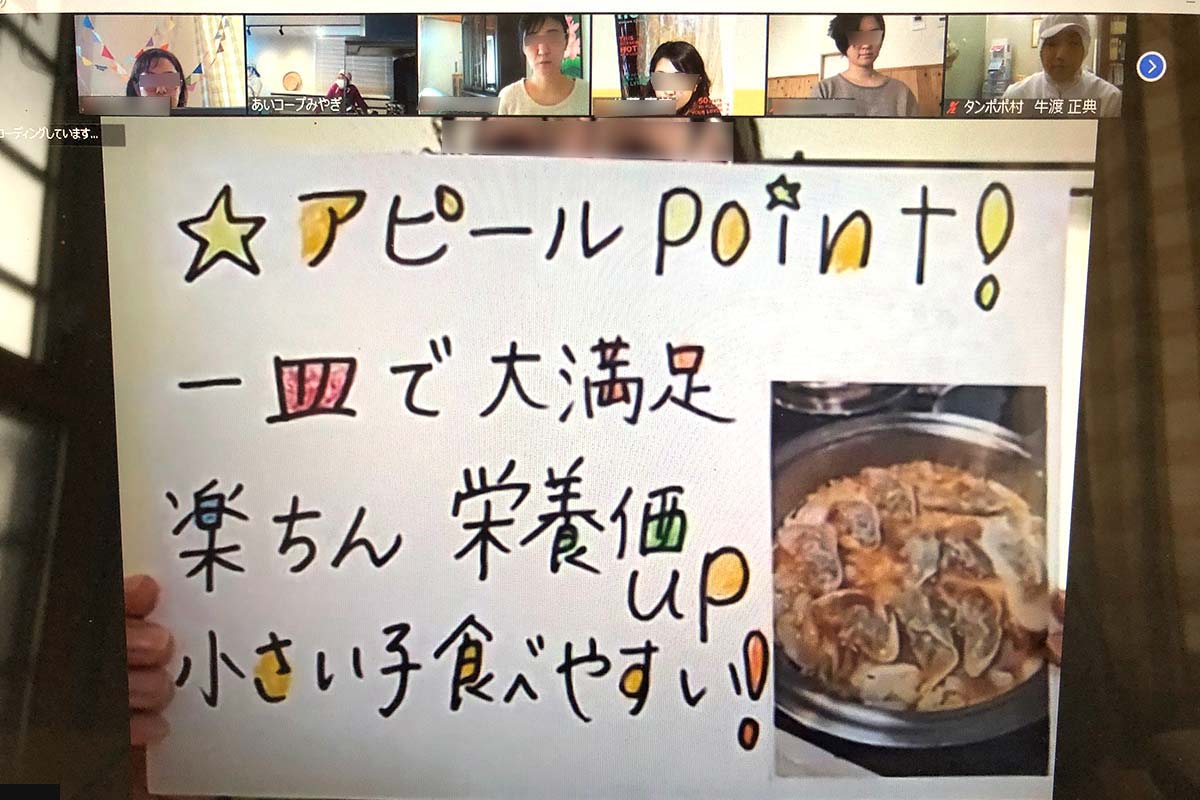 あいコープみやぎ
タンポポ村 牛渡 正典
コーディングしています...
☆アピール Point!
一皿で大満足
楽ちん 栄養価
up
小さい子食べやすい!